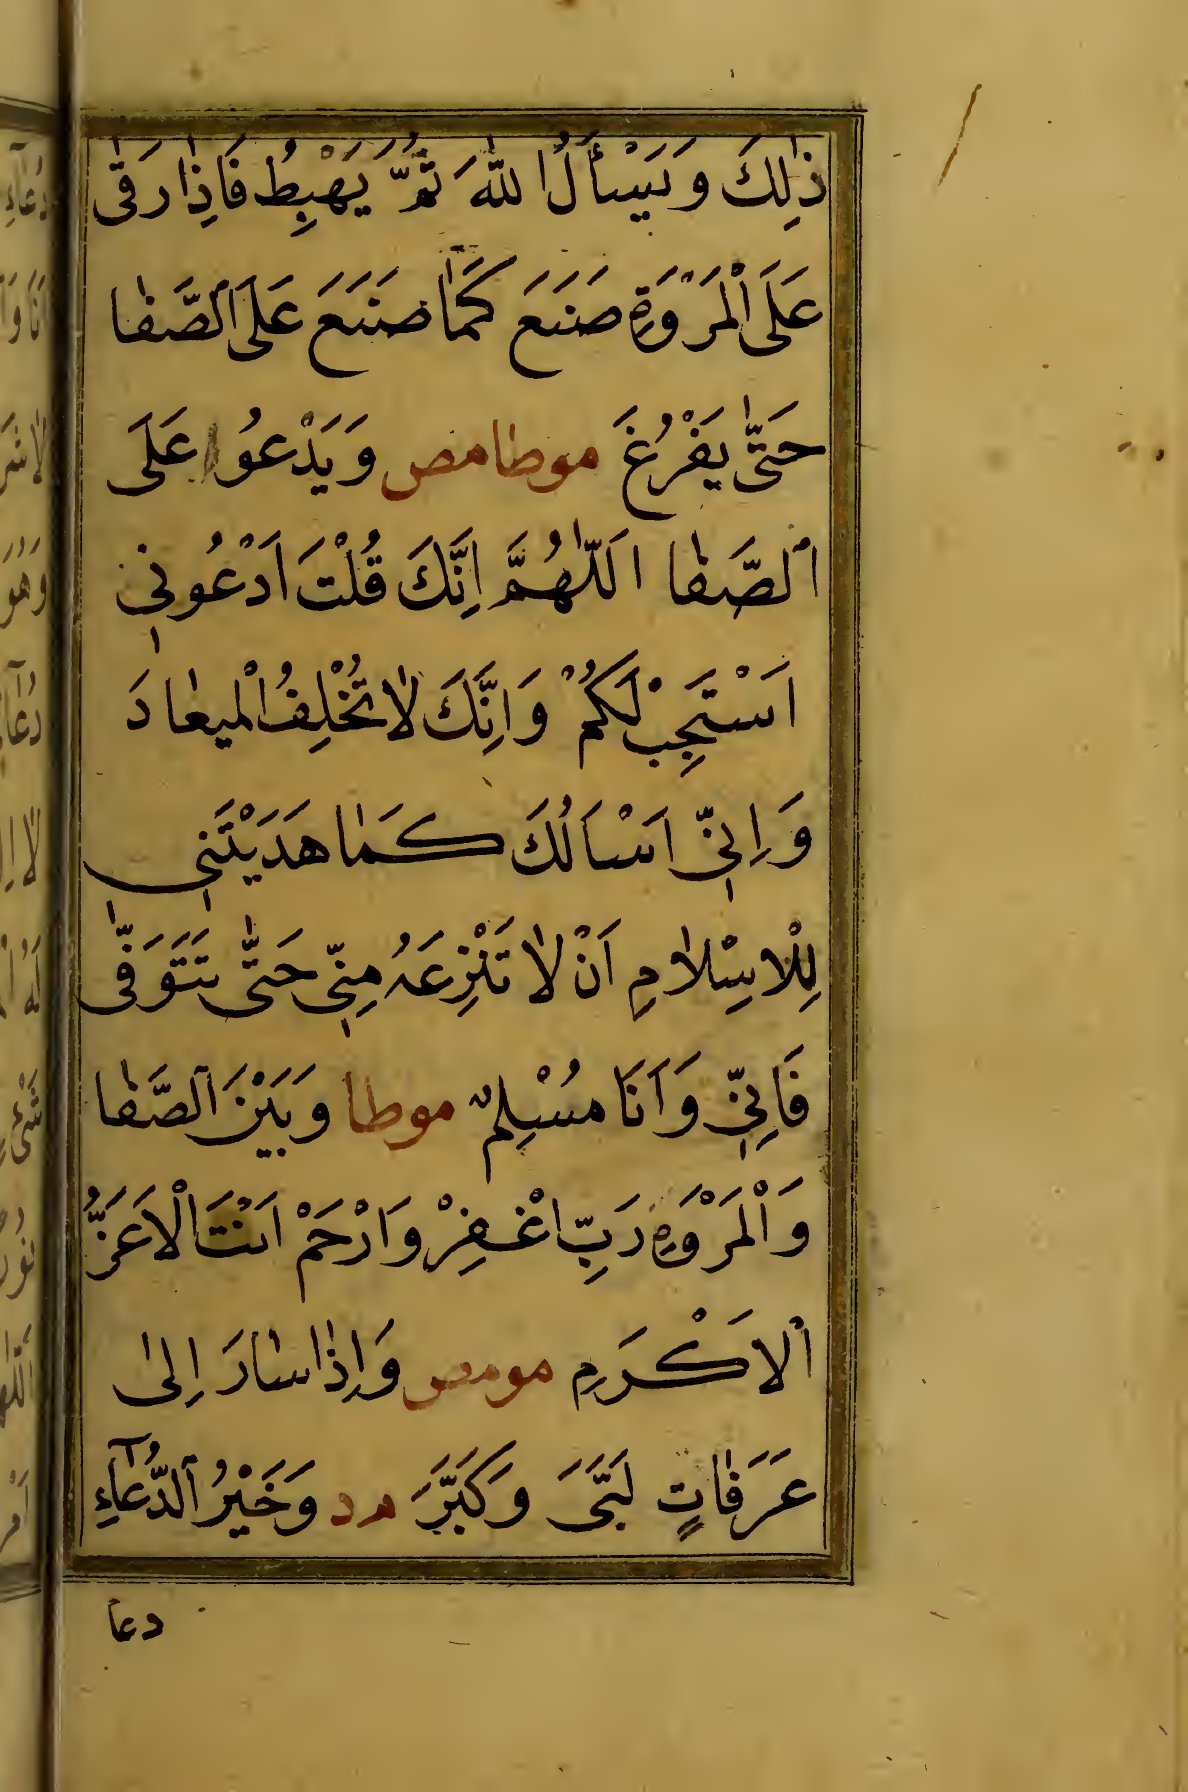 ذٰلِكَ وَيَسْأَلُ اللّٰهَ ثُمَّ يَهْبِطُ فَاِذَا رَقٰى
عَلَى الْمَرْوَةِ صَنَعَ كَمَا صَنَعَ عَلَى الصَّفٰا
حَتّٰى يَفْرُغَ موطا مص وَيَدْعُوا عَلَى
الصَّفٰا اَللّٰهُمَّ اِنَّكَ قُلْتَ اَدْعُونِي
اَسْتَجِبْ لَكُمْ وَاِنَّكَ لٰا تُخْلِفُ الْميعٰادَ
وَاِنِّي اَسْاَلُكَ كَمٰا هَدَيْتَنِي
لِلْاِسْلٰامِ اَنْ لٰا تَنْزِعَهُ مِنِّي حَتّٰى تَتَوَفّٰى
فَاِنِّي وَاَنَا مُسْلِمٌ موطا وَبَيْنَ الصَّفٰا
وَالْمَرْوَةِ رَبِّ اغْفِرْ وَارْحَمْ اَنْتَ الْاَعَزُّ
الْاَكْرَمِ مو مص وَاِذٰا سٰارَ اِلٰى
عَرَفٰاتٍ لَبَّىَ وَكَبَّرَ م د وَخَيْرُ الدُّعَآءِ
دعا
دُعَآءِ